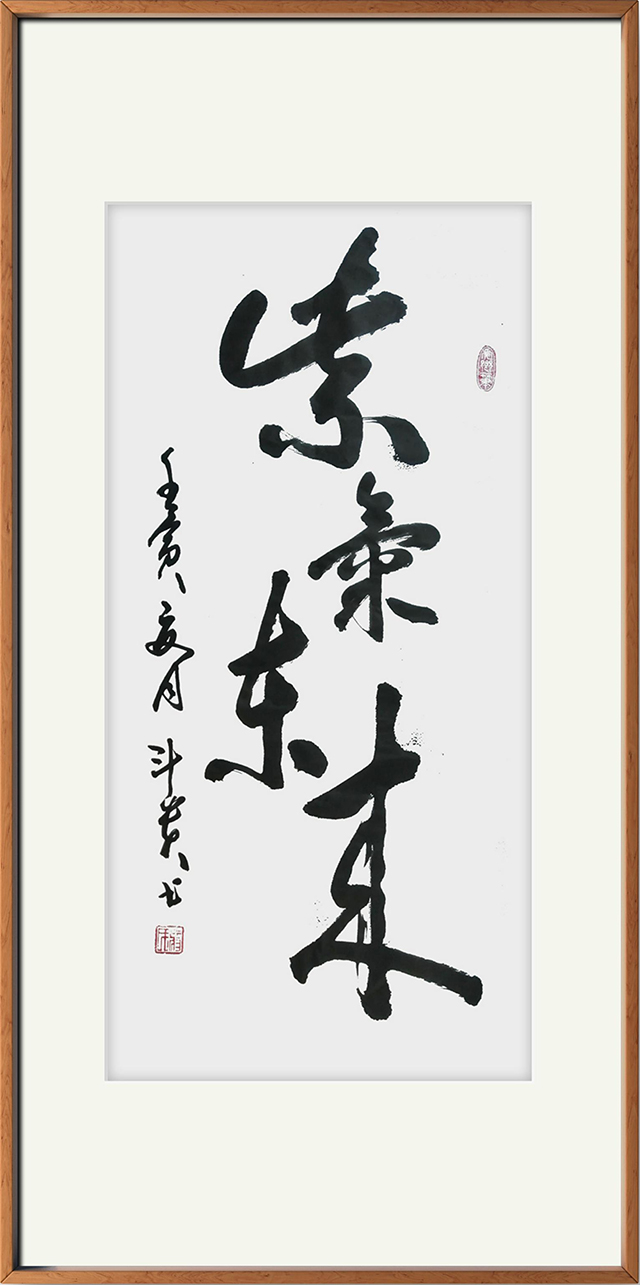 紫氣东来
壬寅夏月斗书